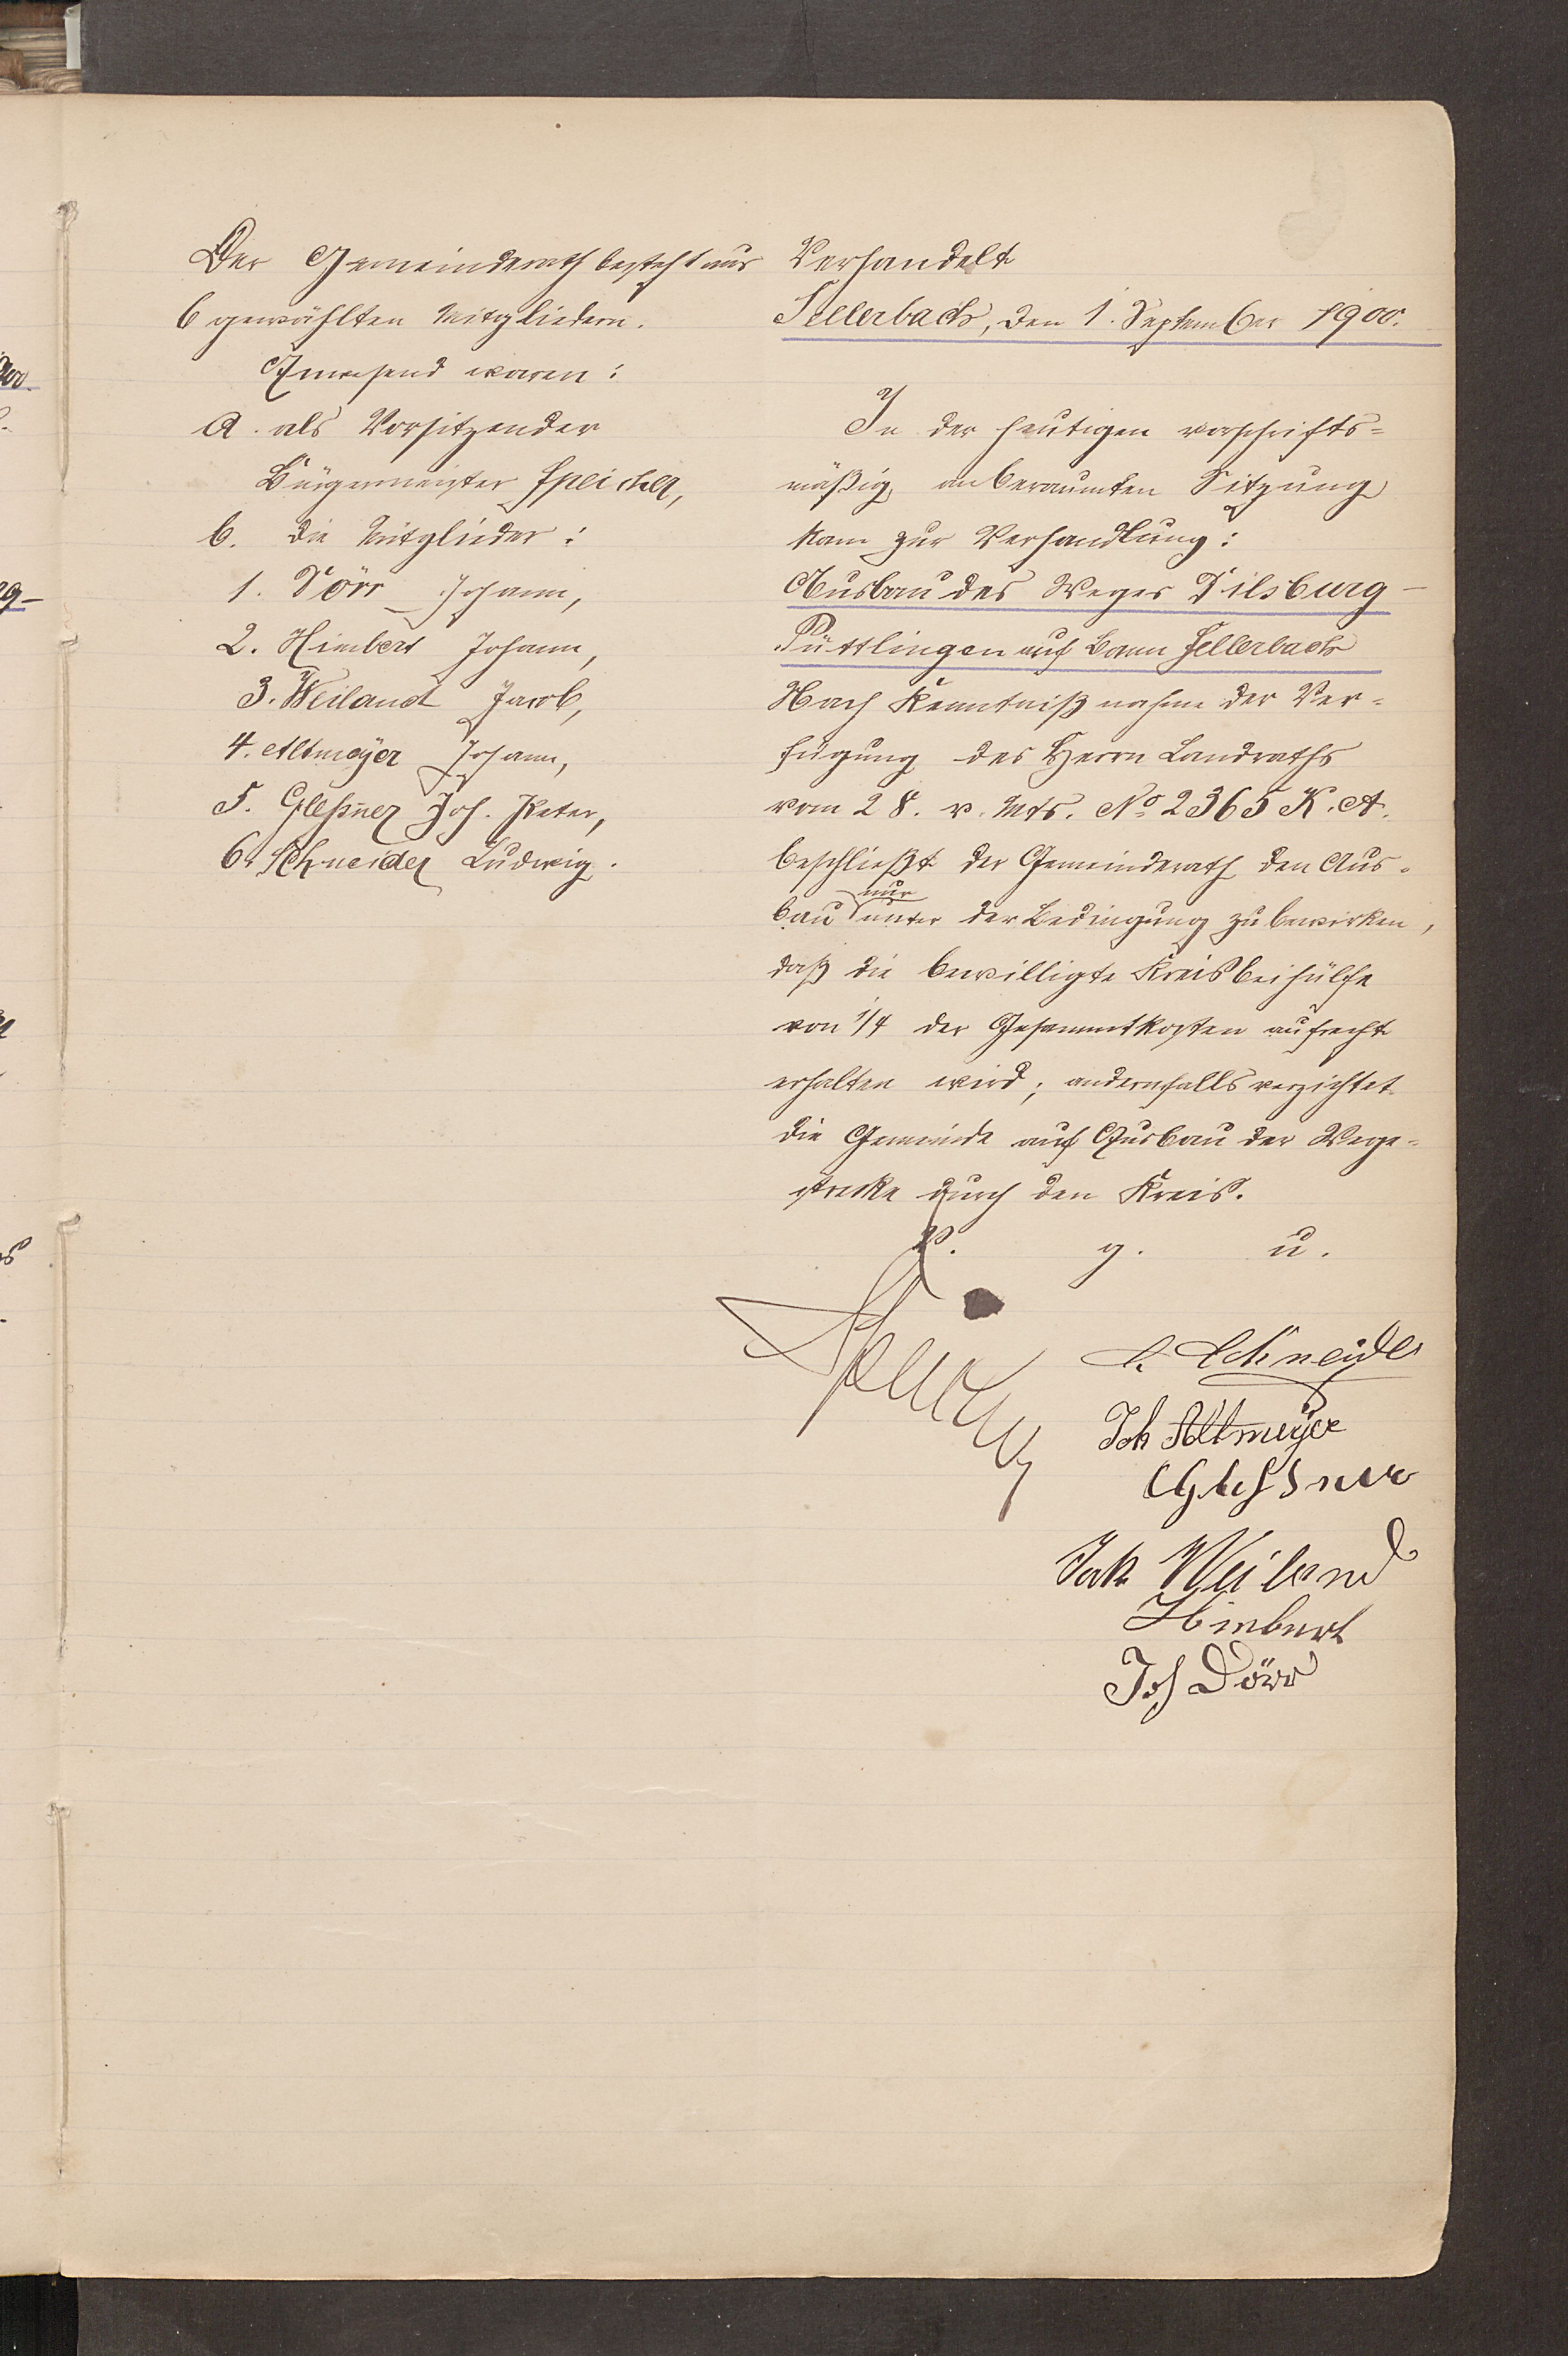 Der Gemeinderath besteht aus
6 gewählten Mitgliedern.
Anwesend waren:
a. als Vorsitzender
Bürgermeister Speicher,
b. die Mitglieder:
1. Dörr Johann,
2. Himbert Johann,
3. Weiland Jacob,
4. Altmeyer Johann,
5. Gleßner Joh. Peter,
6. Schneider Ludwig.
Verhandelt
Sellerbach, den 1. September 1900.
In der heutigen vorschrifts=
mäßig anberaumten Sitzung
kam zur Verhandlung:
Ausbau des Weges Dilsburg -
Püttlingen auf Bann Sellerbach
Nach Kenntnißnahme der Ver=
fügung des Herrn Landraths
vom 28. v. Mts. No 2365 K. A.
beschließt der Gemeinderath den Aus=
bau nur unter der Bedingung zu bewirken,
daß die bewilligte Kreisbeihülfe
von 1/4 der Gesammtkosten aufrecht
erhalten wird; andernfalls verzichtet
die Gemeinde auf Ausbau der Wege=
strecke durch den Kreis.
v. g. u.
Speicher
L. Schneider
Joh Altmeyer
Glessner
Jak Weiland
Himbert
Joh Dörr